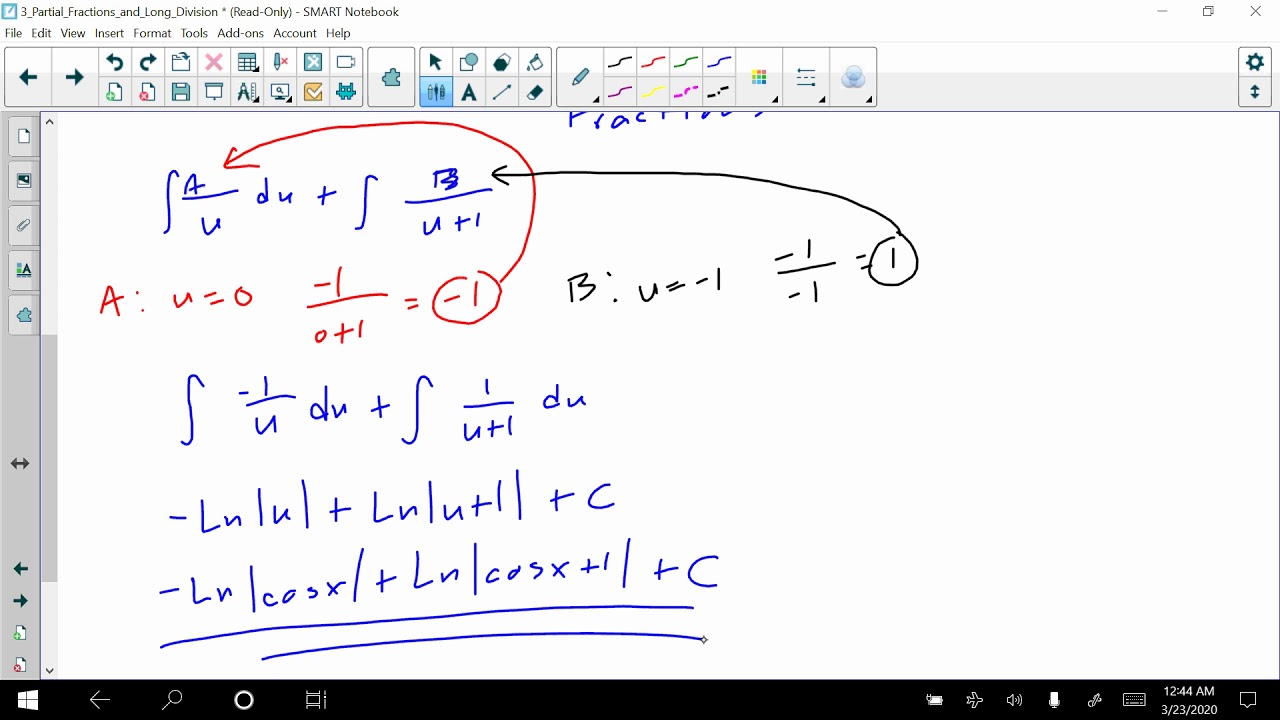 3_Partial_Fractions_and_Long_Division * (Read-Only) - SMART Notebook
File Edit View Insert Format Tools Add-ons Account Help
Fractions
∫ A/u du + ∫ B/(u+1)
A: u=0 -1/(0+1) = -1
B: u=-1 -1/-1 = 1
∫ -1/u du + ∫ 1/(u+1) du
-Ln|u| + Ln|u+1| + C
-Ln|cosx| + Ln|cosx+1| + C
12:44 AM
3/23/2020